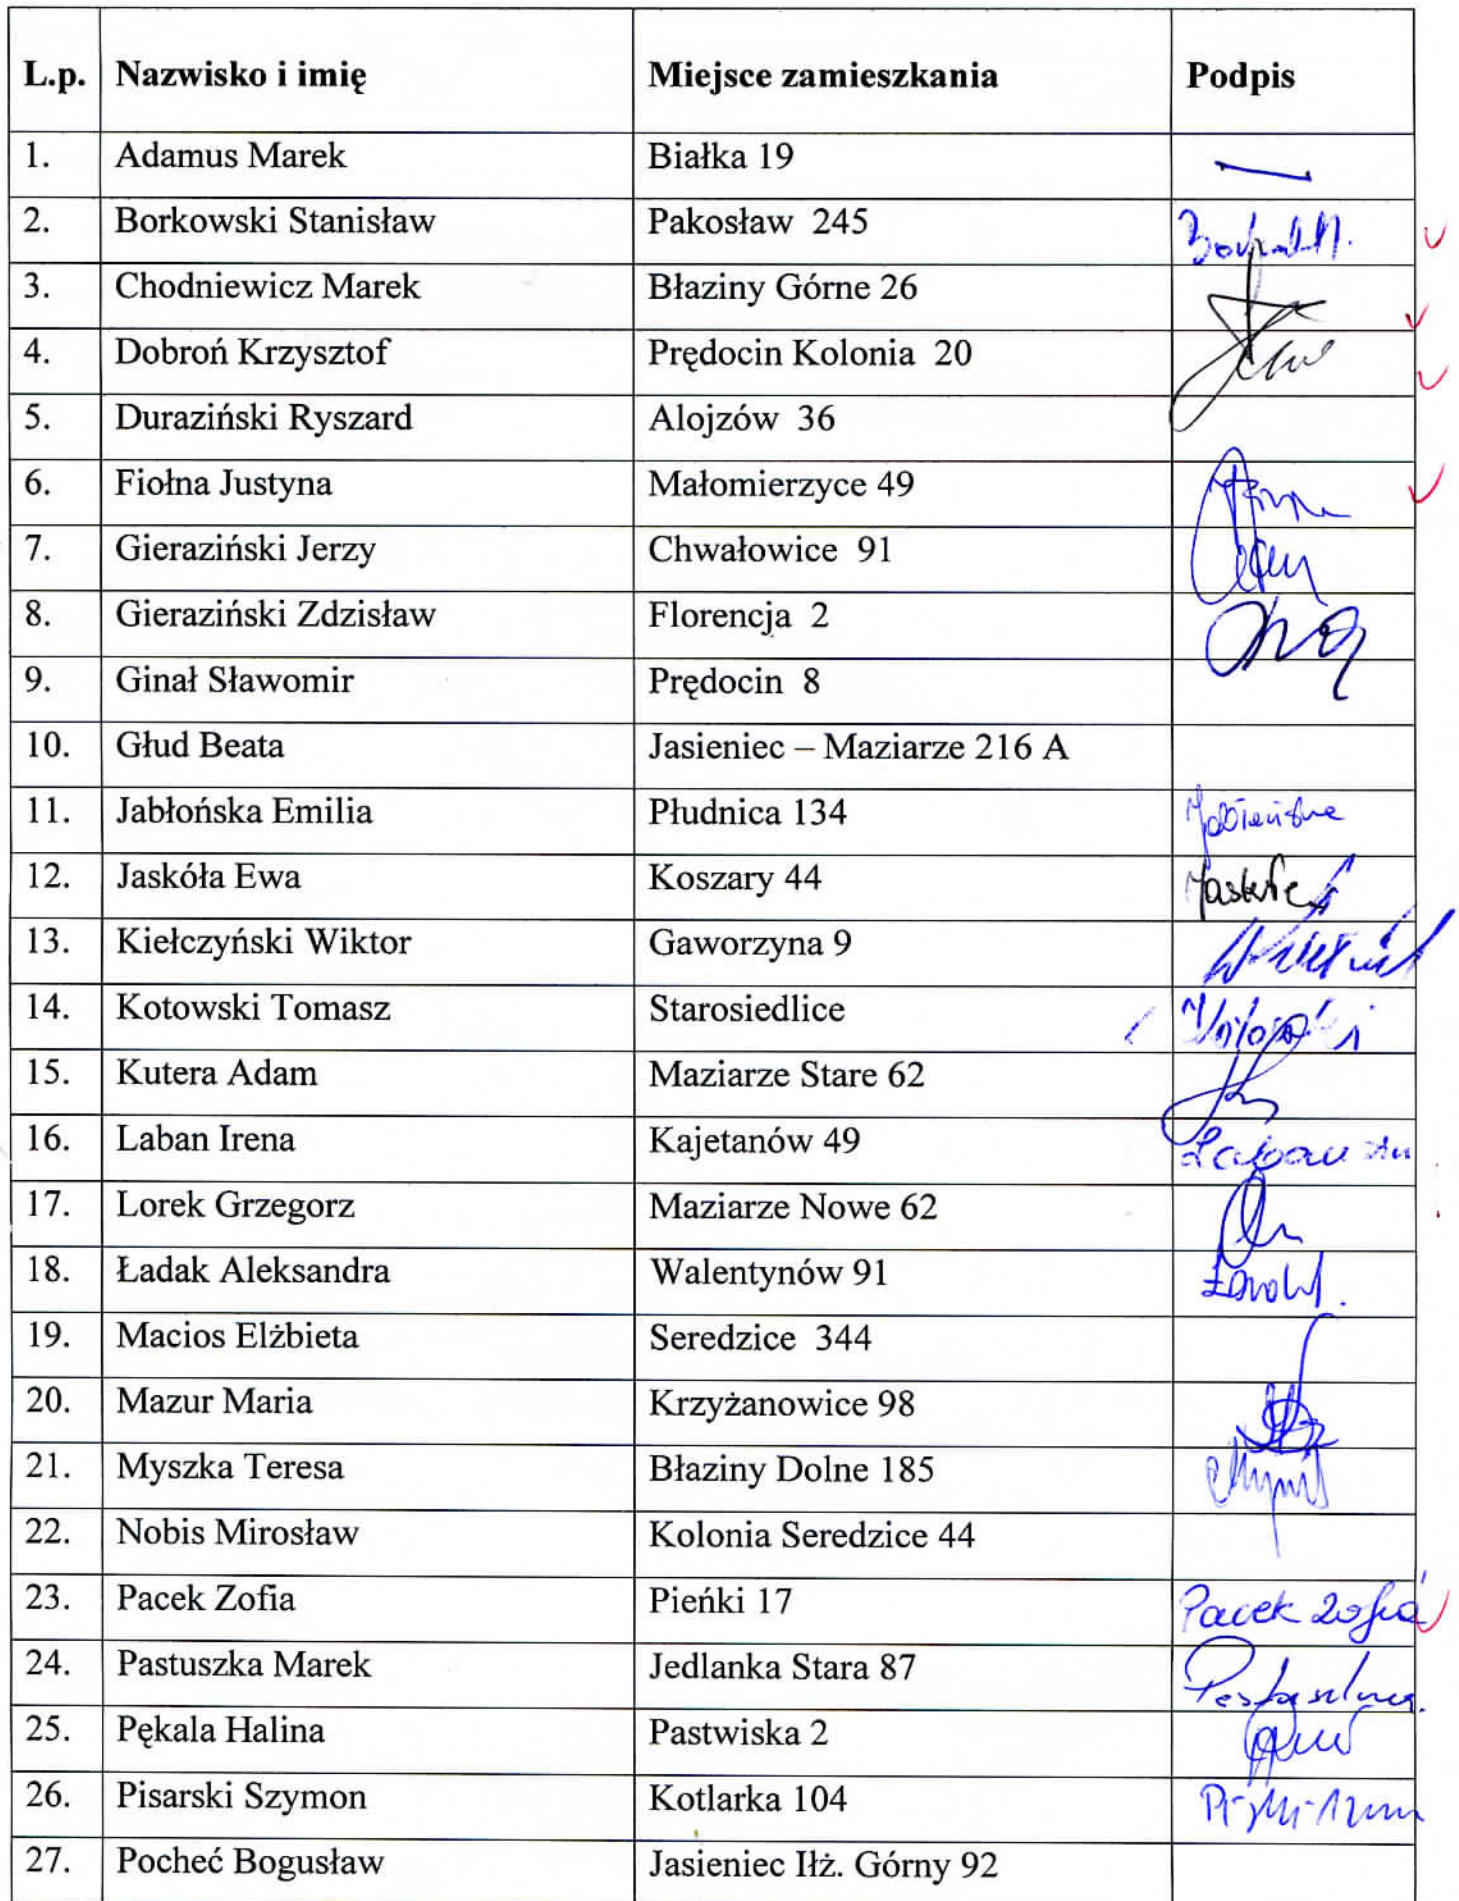 L.p. Nazwisko i imię Miejsce zamieszkania Podpis
1. Adamus Marek Białka 19
2. Borkowski Stanisław Pakosław 245
3. Chodniewicz Marek Błaziny Górne 26
4. Dobroń Krzysztof Prędocin Kolonia 20
5. Duraziński Ryszard Alojzów 36
6. Fiołna Justyna Małomierzyce 49
7. Gieraziński Jerzy Chwałowice 91
8. Gieraziński Zdzisław Florencja 2
9. Ginał Sławomir Prędocin 8
10. Głud Beata Jasieniec – Maziarze 216 A
11. Jabłońska Emilia Płudnica 134 Jabłońska
12. Jaskóła Ewa Koszary 44
13. Kiełczyński Wiktor Gaworzyna 9
14. Kotowski Tomasz Starosiedlice
15. Kutera Adam Maziarze Stare 62
16. Laban Irena Kajetanów 49 Laban
17. Lorek Grzegorz Maziarze Nowe 62
18. Ładak Aleksandra Walentynów 91
19. Macios Elżbieta Seredzice 344
20. Mazur Maria Krzyżanowice 98
21. Myszka Teresa Błaziny Dolne 185
22. Nobis Mirosław Kolonia Seredzice 44
23. Pacek Zofia Pieńki 17 Pacek Zofia
24. Pastuszka Marek Jedlanka Stara 87
25. Pękala Halina Pastwiska 2
26. Pisarski Szymon Kotlarka 104
27. Pocheć Bogusław Jasieniec Iłż. Górny 92